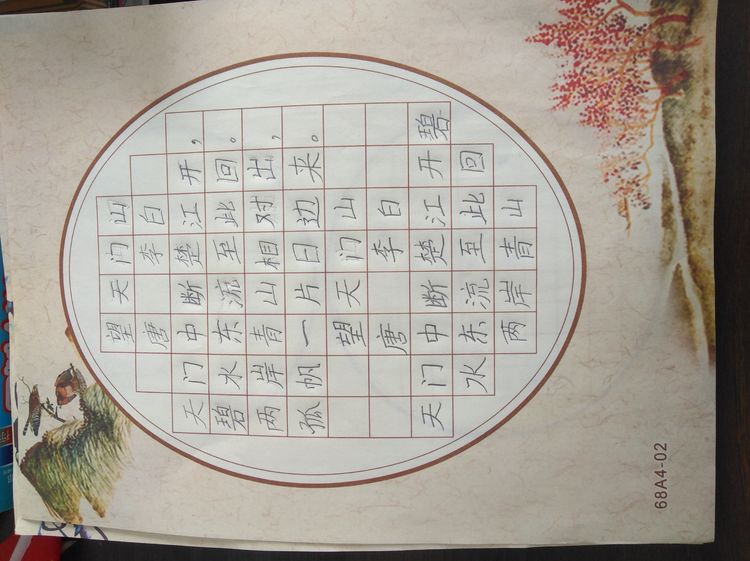 望天门山
唐 李白
天门中断楚江开，
碧水东流至此回。
两岸青山相对出，
孤帆一片日边来。
望天门山
唐 李白
天门中断楚江开碧
水东流至此回
两岸青山
68A4-02